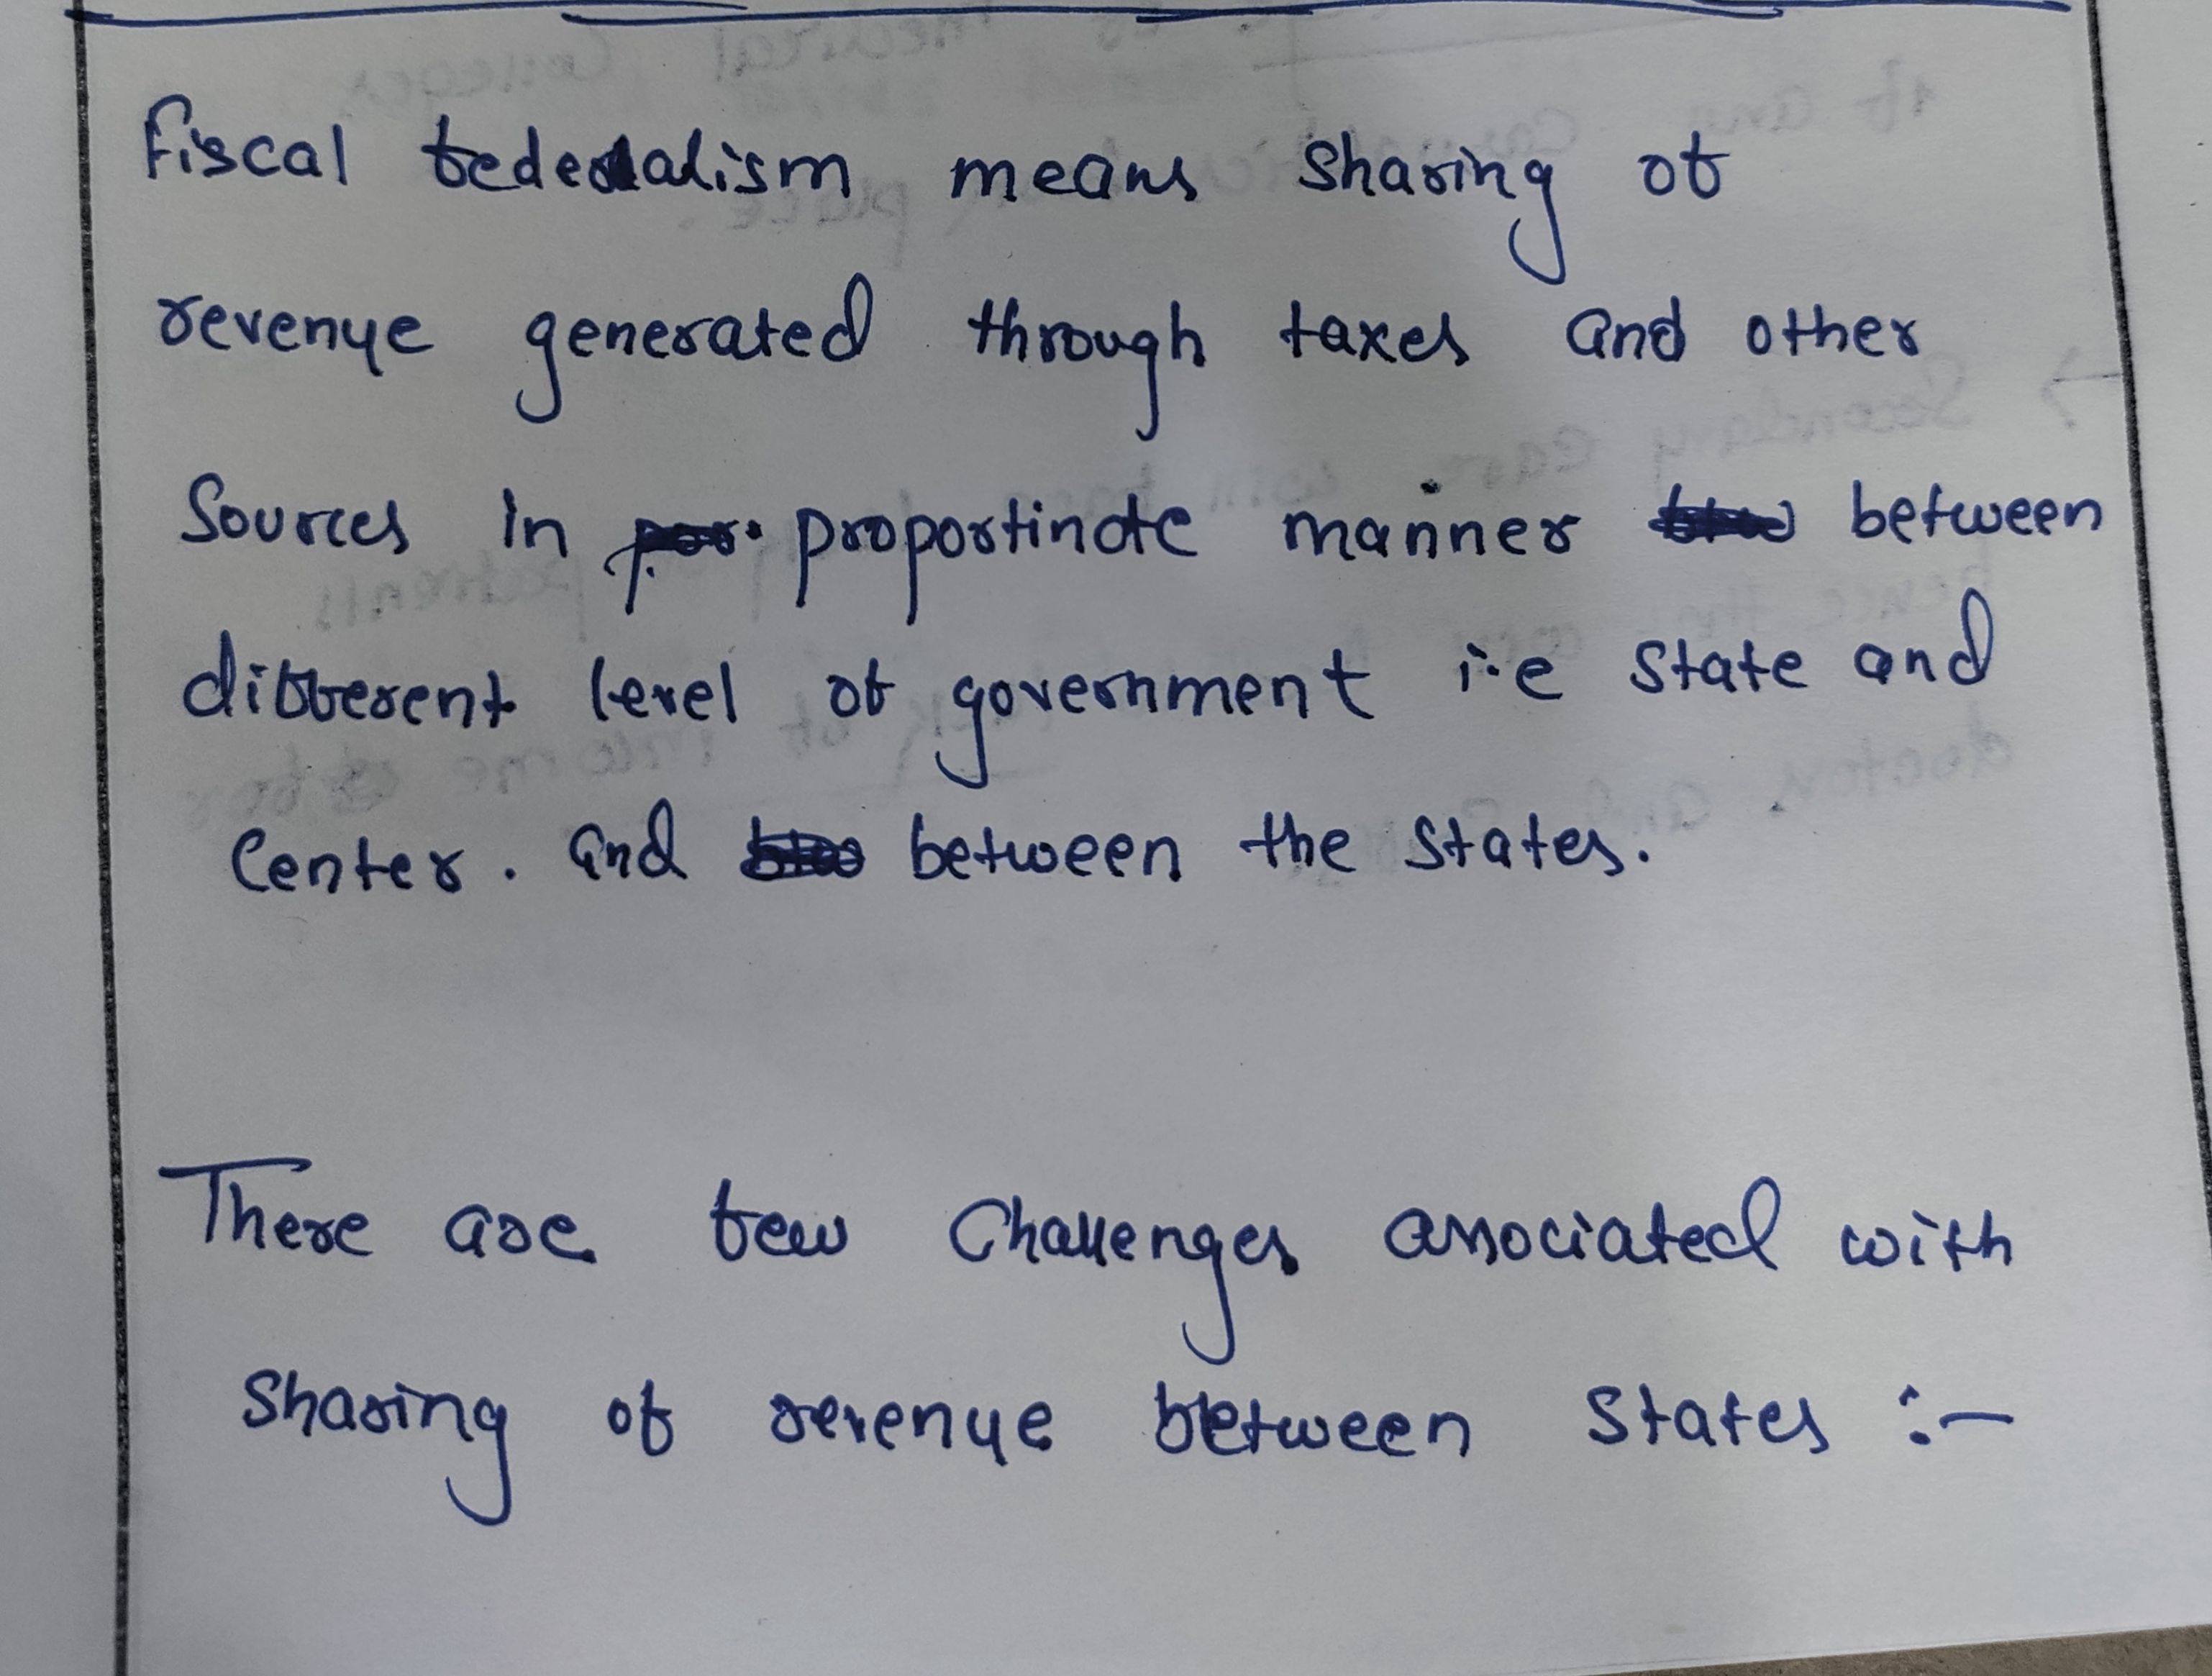 Fiscal federalism means sharing of
revenue generated through taxes and other
Sources in proportinate manner between
different level of government i.e State and
Center. and between the States.
There are few Challenges associated with
Sharing of revenue between States :-